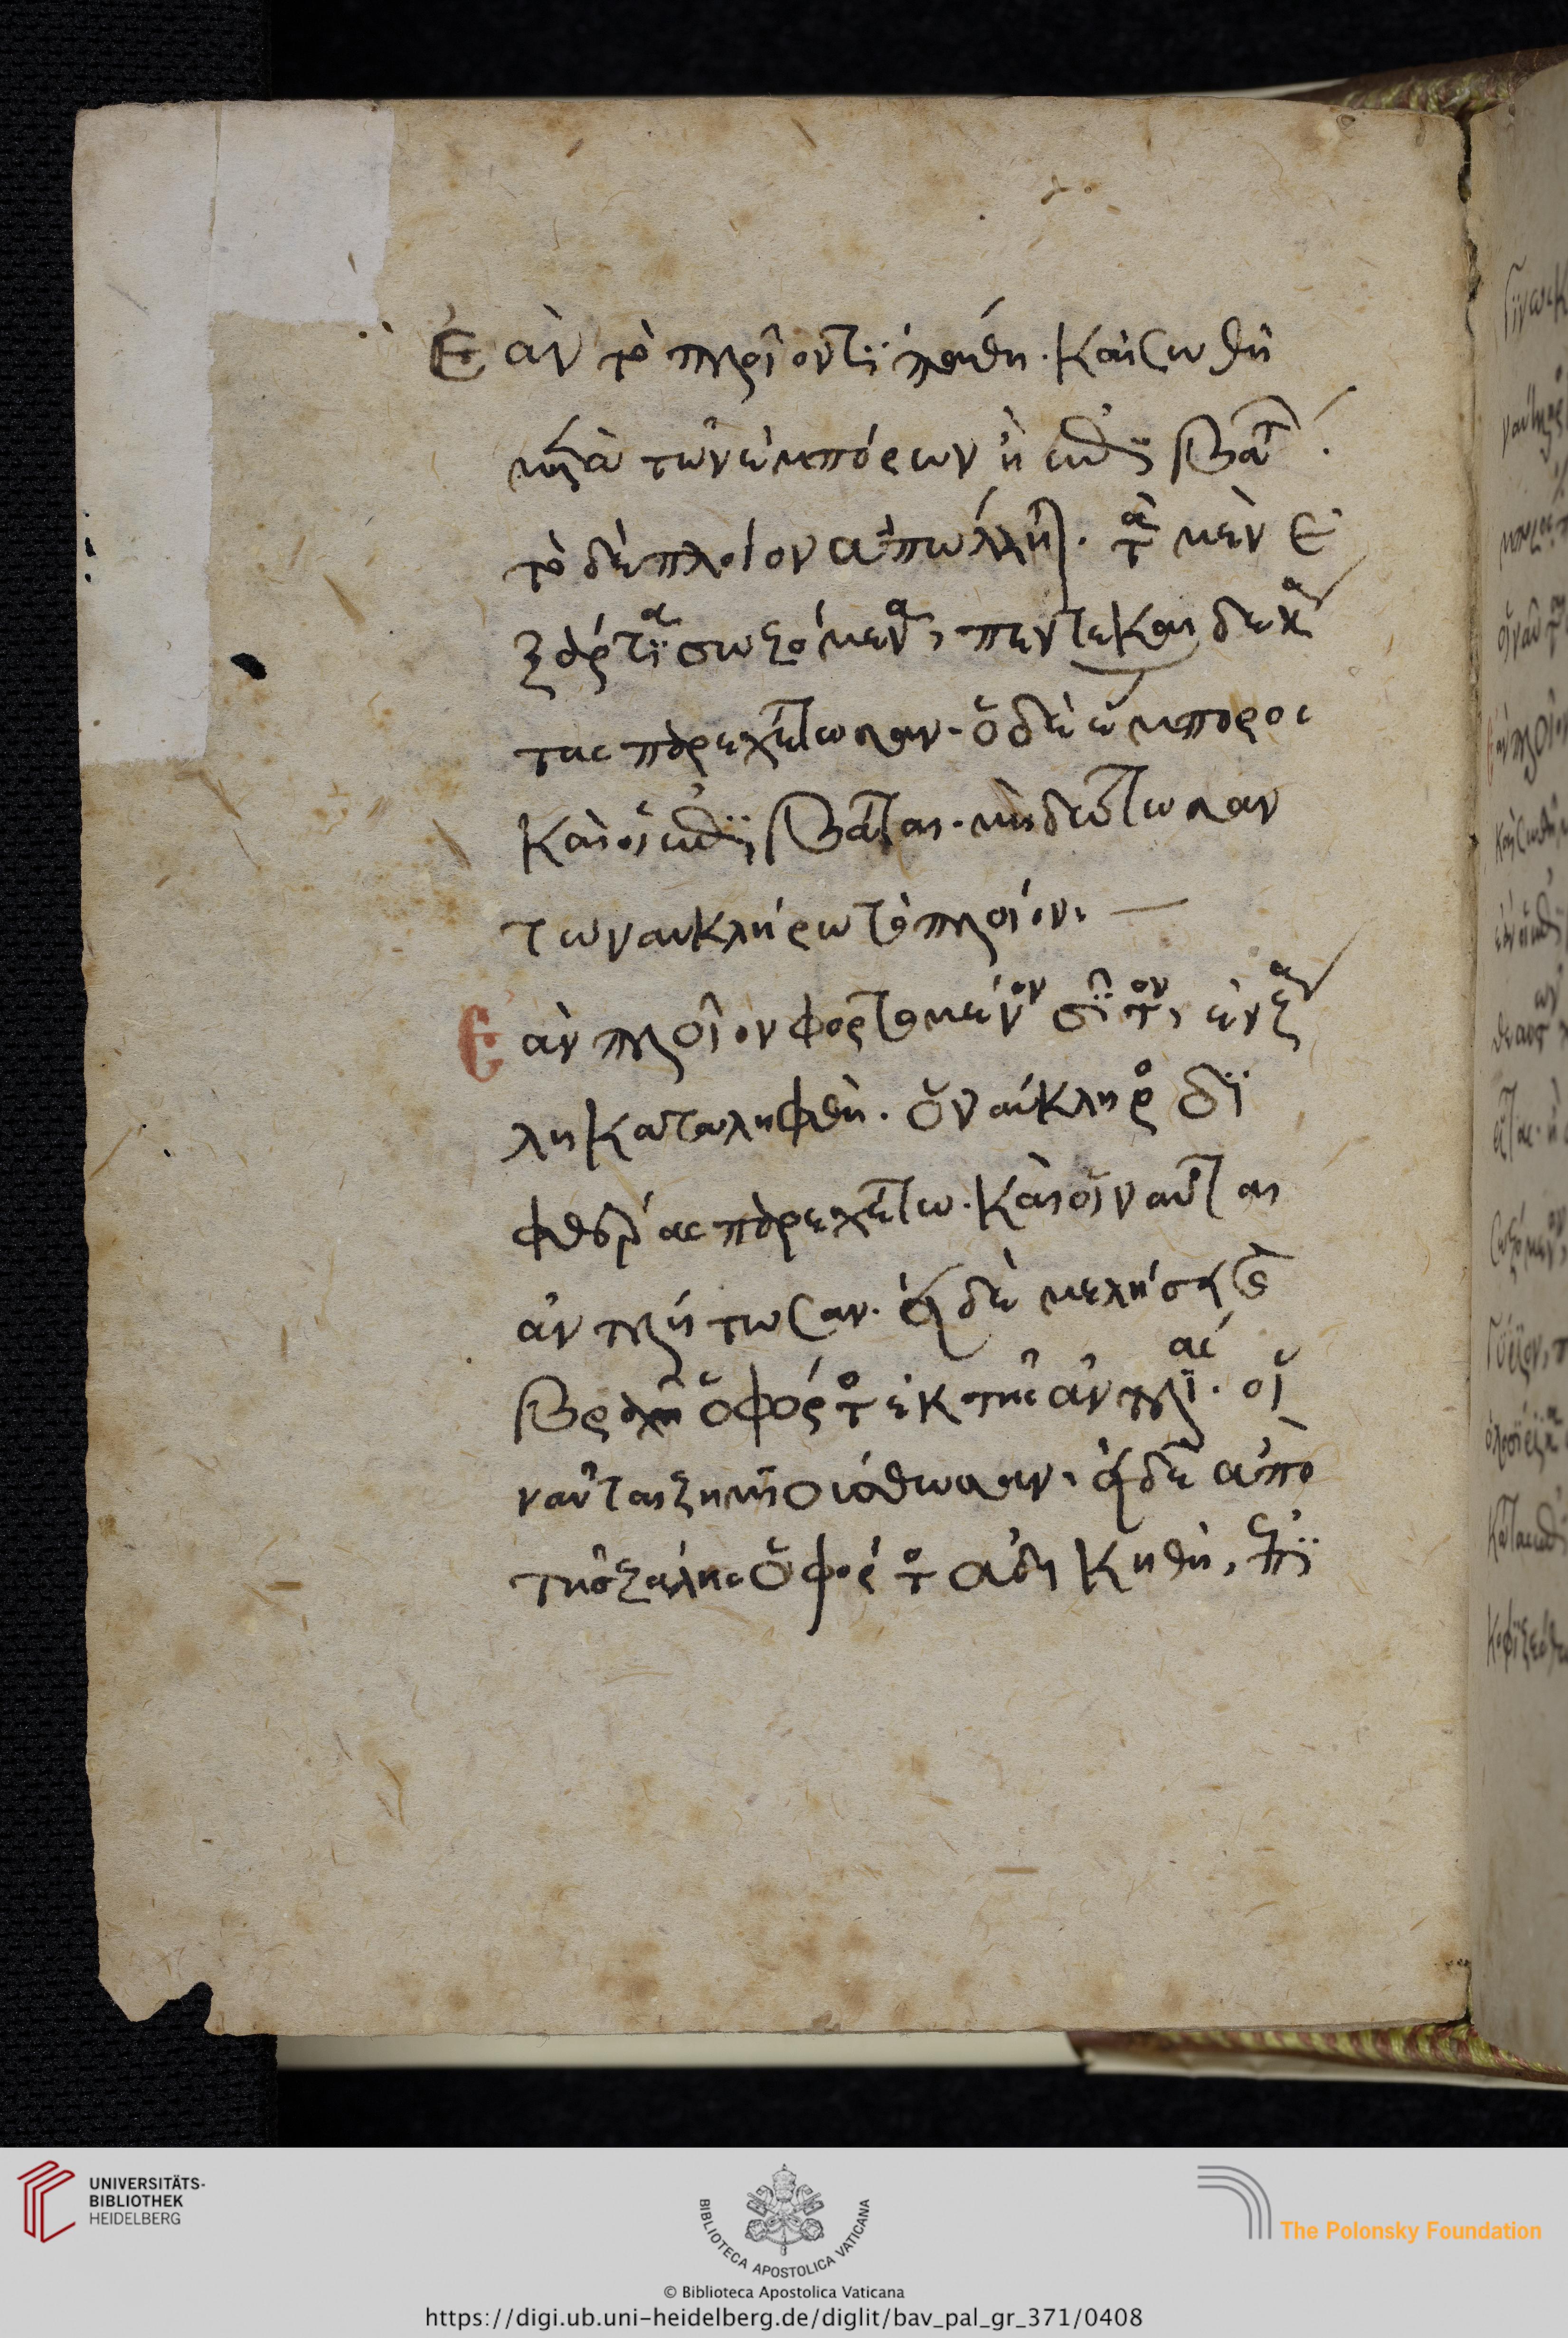 Ἐὰν τὸ πλοῖον τι πάθη. καὶ σωθῆ
μετὰ τῶν ἐμπόρων ἢ ἐπιβάτ
τὸ δὲ πλοῖον ἀπώλληται. τὰ μὲν ἐ
ξάρτια σωζόμενα, πεντεκαιδεκά
τας παρεχέτωσαν. ὁ δὲ ἔμπορος
καὶ οἱ ἐπιβάται. μὴ δότωσαν
τω ναυκλήρω τὸ πλοῖον.
Ἐὰν πλοῖον φορτ μένον σῖτον, ἐν ζά
λη καταληφθῆ. ὁ ναύκληρος δι
φθέρας παρεχέτω. καὶ οἱ ναῦται
ἀντλήτωσαν. εἰ δὲ μελήσ
βραχῆ ὁ φόρτος ἐκ τῆς ἀντλίας. οἱ
ναῦται ζημιούσθωσαν. εἰ δὲ ἀπὸ
τῆς ζάλης ὁ φόρτος ἀδικηθῆ, ἐπι
UNIVERSITÄTS-
BIBLIOTHEK
HEIDELBERG
BIBLIOTECA APOSTOLICA VATICANA
The Polonsky Foundation
© Biblioteca Apostolica Vaticana
https://digi.ub.uni-heidelberg.de/diglit/bav_pal_gr_371/0408